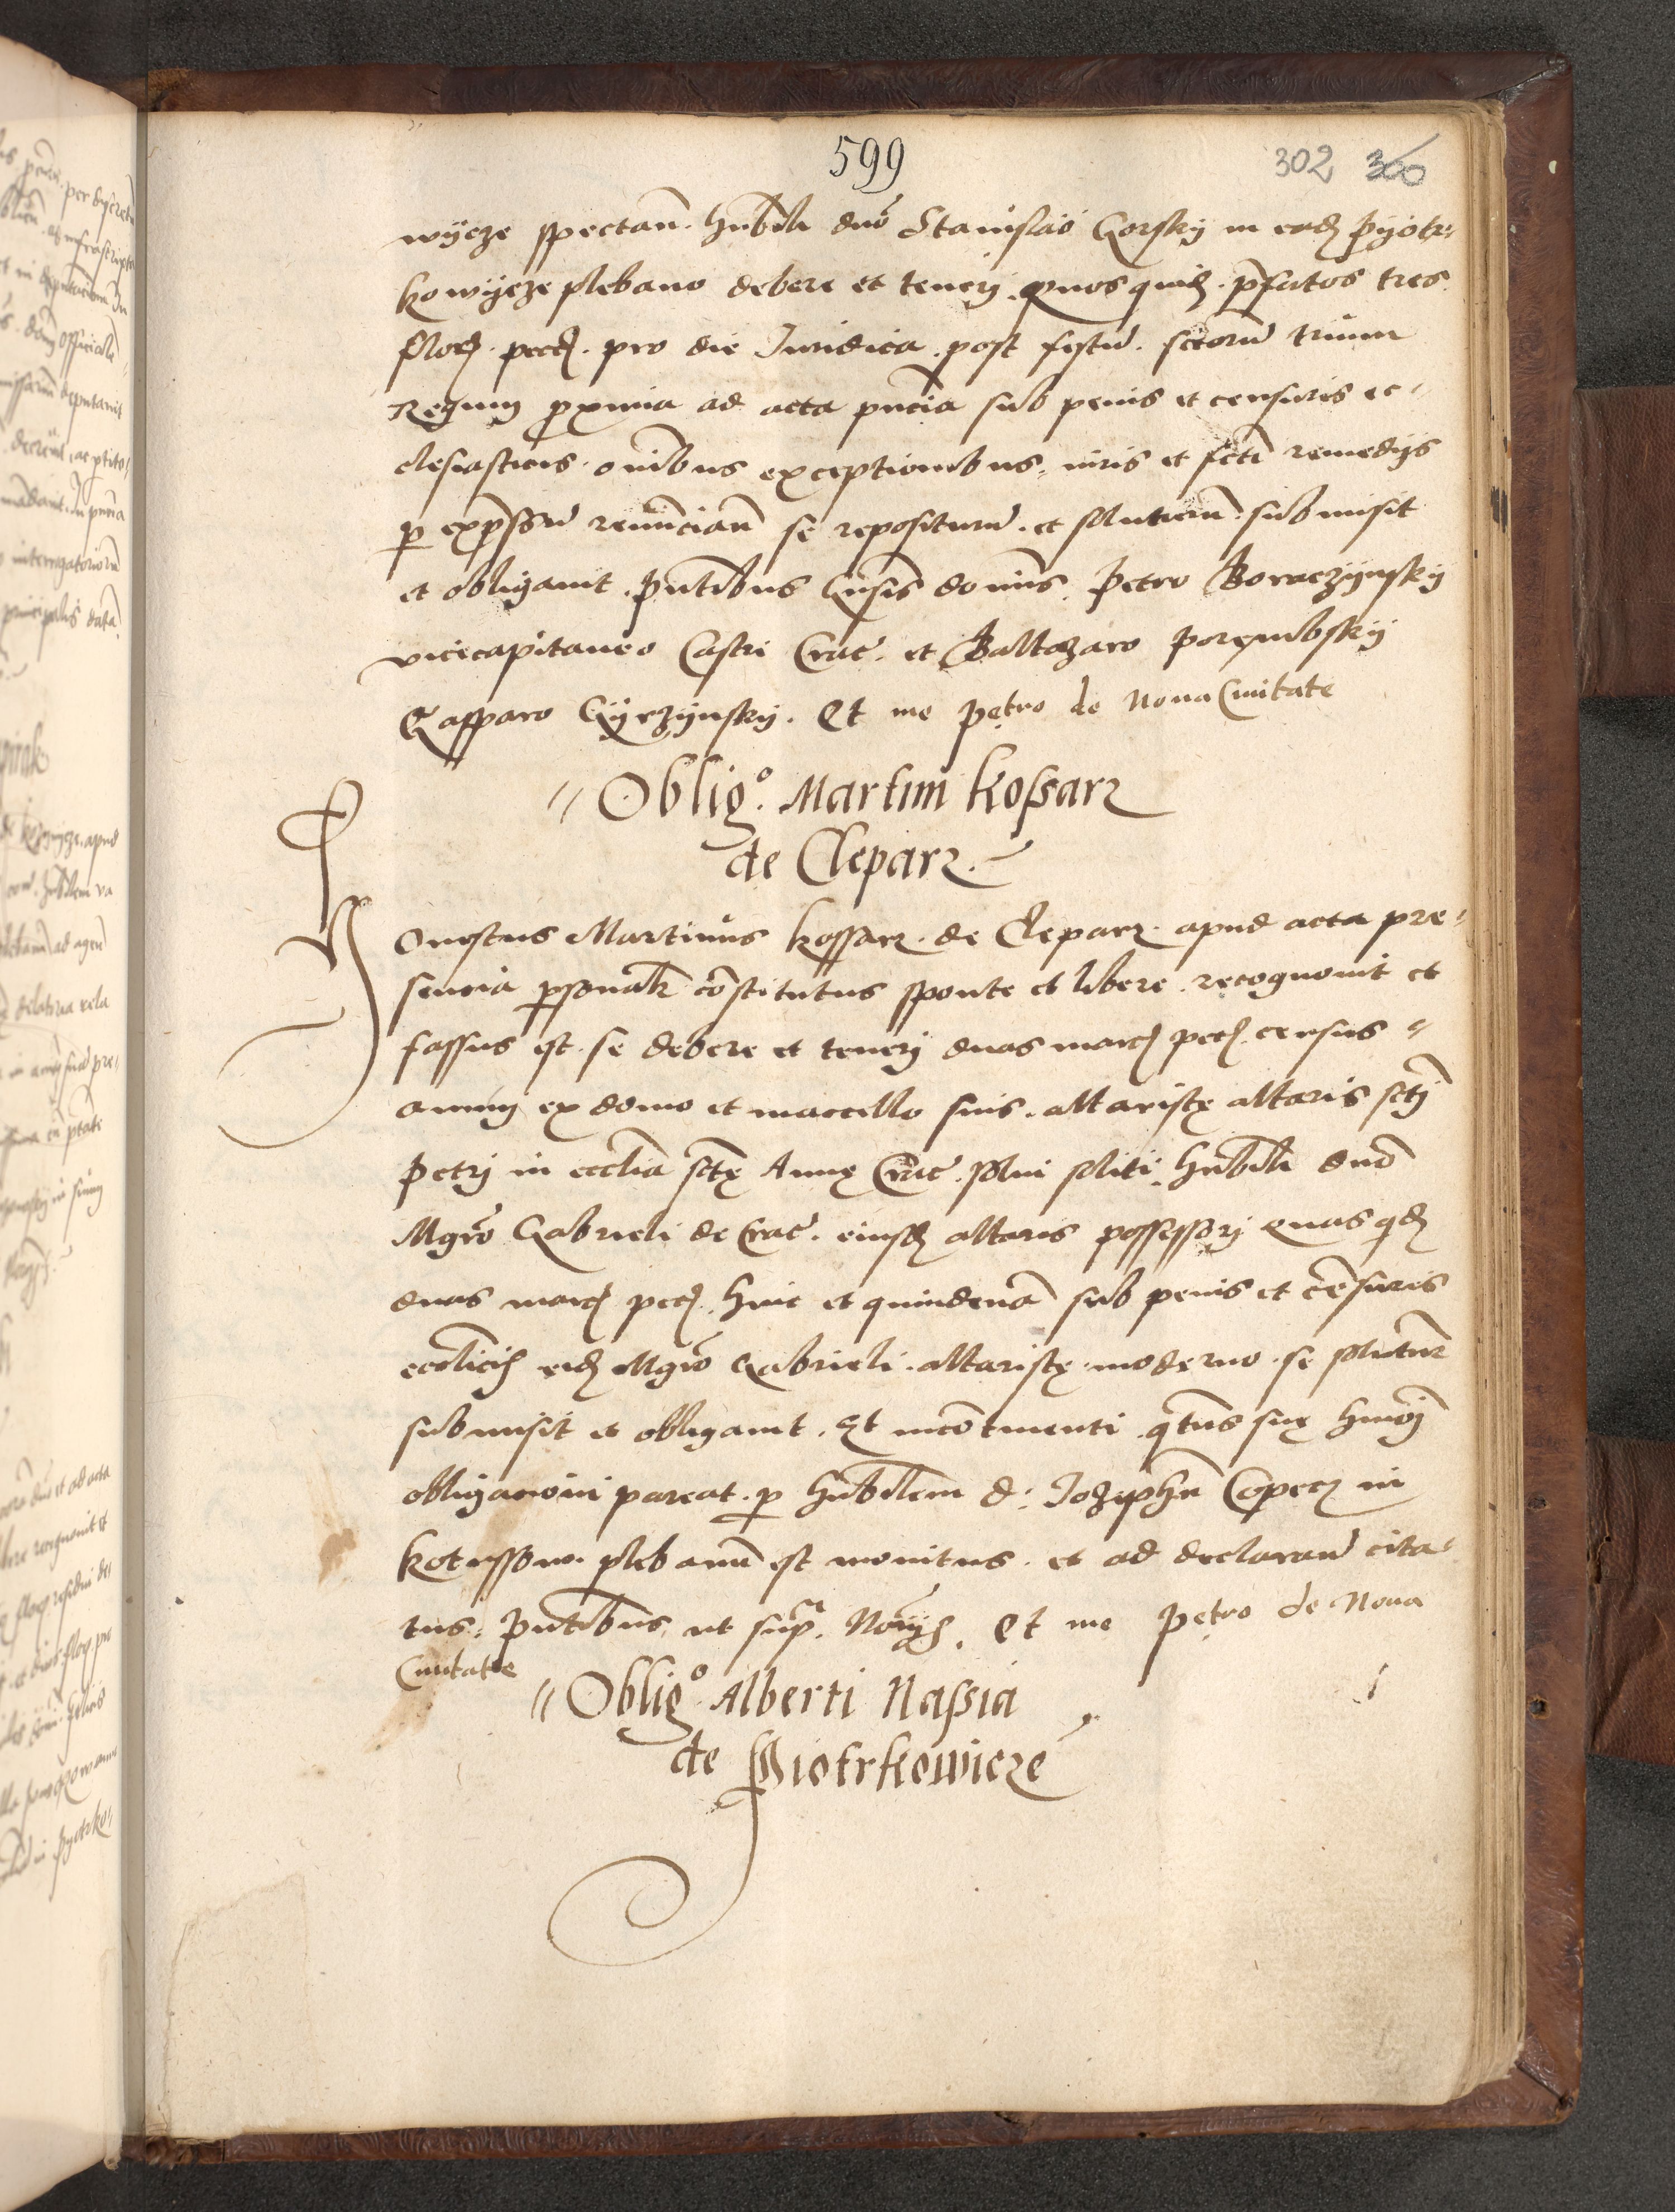 599
302 300
wÿcze spectan̄. hn̄bili dn̄o Stanislao Gorskÿ in ead₃ Pÿotr-
kowÿcze plebano debere et tenerj. Quos quid₃ p̄fatos tres
flor₃. pecc₃. pro die Iuridica post festū. sctorū trium
Regum pxima ad acta pn̄cia sub penis et censuris ec-
clesiasticis. om̄ibus exceptionibus. iuris et fcti remedÿs
p exp̄ssū renūncian̄ se repositurū. et soluturū submisit
et obligauit. Pn̄tibus Gn̄sis domīs. Petro Boraczÿnskÿ
vicecapitaneo Castri Crac̄. et Baltazaro Porembskÿ
Gasparo Gÿrzÿnskÿ. Et me Petro de Noua Ciuitate
Oblig.º Martini Kossarz
de Cleparz.
Honestus Martinus Kossarz. de Cleparz. apud acta pre-
sencia psonalr̄ cōstitutus sponte et libere. recognouit et
fassus est. se debere et tenerj duas marc₃ pec₃. census
annuj ex domo et maccello suis. altaristę altaris sctj
Petrj in ecclīa sctę Annę Crac̄. solui soliti. hn̄bili dn̄o
Mgro Gabrieli de Crac̄. eiusd₃ altaris possessorj Quas qd₃
duas marc₃ pec₃. hinc et quindenā sub penis et cēsuris
ecclīcis eid₃ Mgro Gabrieli. altaristę. moderno. se solutur̄
submisit et obligauit. Et incōtinenti qtn̄us suę hm̄oj
obligacioni pareat. p hn̄bilem d: Jozephū Copecz in
Kotussow. plebanū est monitus. et ad declarand̄ cita-
tus. Pn̄tibus ut supª. Notÿs. Et me Petro de Noua
Ciuitate
Oblig.º Alberti Nassia
de Piotrkowicze